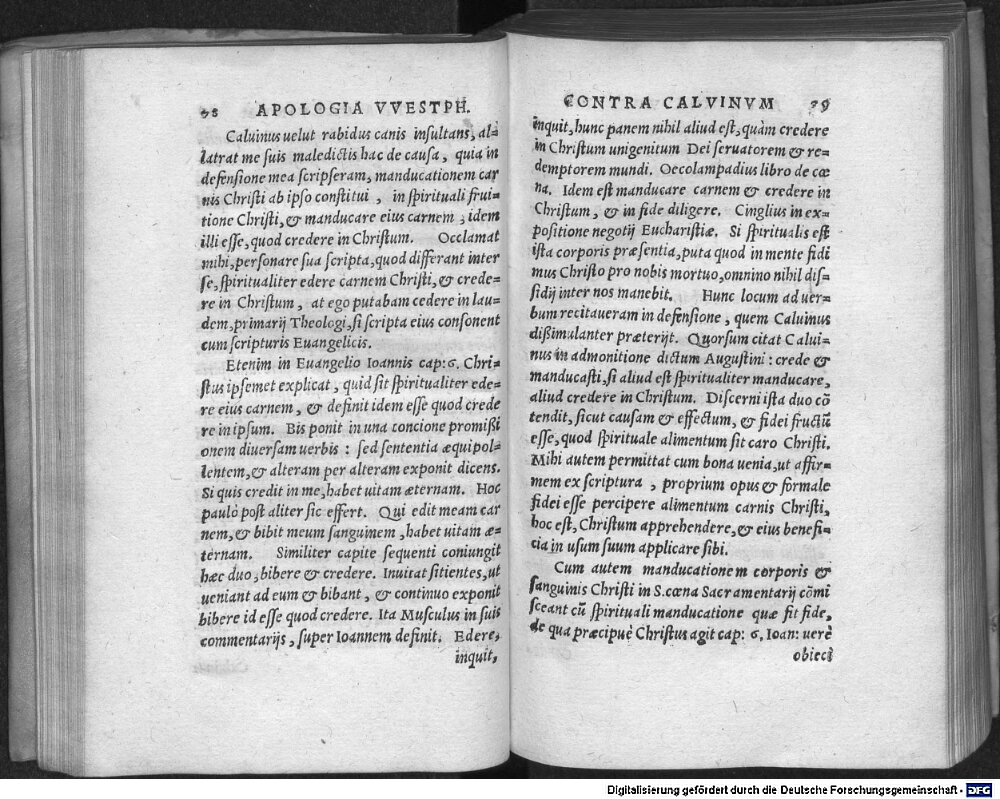 98 APOLOGIA VVESTPH.
Caluinus uelut rabidus canis insultans, al-
latrat me suis maledictis hac de causa, quia in
defensione mea scripseram, manducationem car
nis Christi ab ipso constitui, in spirituali frui-
tione Christi, & manducare eius carnem, idem
illi esse, quod credere in Christum. Occlamat
mihi, personare sua scripta, quod differant inter
se, spiritualiter edere carnem Christi, & crede-
re in Christum, at ego putabam cedere in lau-
dem, primarij Theologi, si scripta eius consonent
cum scripturis Euangelicis.
Etenim in Euangelio Ioannis cap: 6. Chri-
stus ipsemet explicat, quid sit spiritualiter ede-
re eius carnem, & definit idem esse quod crede
re in ipsum. Bis ponit in una concione promißi
onem diuersam uerbis: sed sententia æquipol-
lentem, & alteram per alteram exponit dicens.
Si quis credit in me, habet uitam æternam. Hoc
paulò post aliter sic effert. Qui edit meam car
nem, & bibit meum sanguinem, habet uitam æ-
ternam. Similiter capite sequenti coniungit
hæc duo, bibere & credere. Inuitat sitientes, ut
ueniant ad eum & bibant, & continuo exponit
bibere id esse quod credere. Ita Musculus in suis
commentarijs, super Ioannem definit. Edere,
inquit,
CONTRA CALVINVM 99
inquit, hunc panem nihil aliud est, quàm credere
in Christum unigenitum Dei seruatorem & re-
demptorem mundi. Oecolampadius libro de cœ
na. Idem est manducare carnem & credere in
Christum, & in fide diligere. Cinglius in ex-
positione negotij Eucharistiæ. Si spiritualis est
ista corporis præsentia, puta quod in mente fidi
mus Christo pro nobis mortuo, omnino nihil dis-
sidij inter nos manebit. Hunc locum ad uer-
bum recitaueram in defensione, quem Caluinus
dißimulanter præterijt. Quorsum citat Calui-
nus in admonitione dictum Augustini: crede &
manducasti, si aliud est spiritualiter manducare,
aliud credere in Christum. Discerni ista duo cõ
tendit, sicut causam & effectum, & fidei fructũ
esse, quod spirituale alimentum sit caro Christi.
Mihi autem permittat cum bona uenia, ut affir-
mem ex scriptura, proprium opus & formale
fidei esse percipere alimentum carnis Christi,
hoc est, Christum apprehendere, & eius benefi-
cia in usum suum applicare sibi.
Cum autem manducationem corporis &
sanguinis Christi in S. cœna Sacramentarij cõmi
sceant cũ spirituali manducatione quæ fit fide,
de qua præcipuè Christus agit cap: 6. Ioan: uerè
obieci
Digitalisierung gefördert durch die Deutsche Forschungsgemeinschaft - DFG